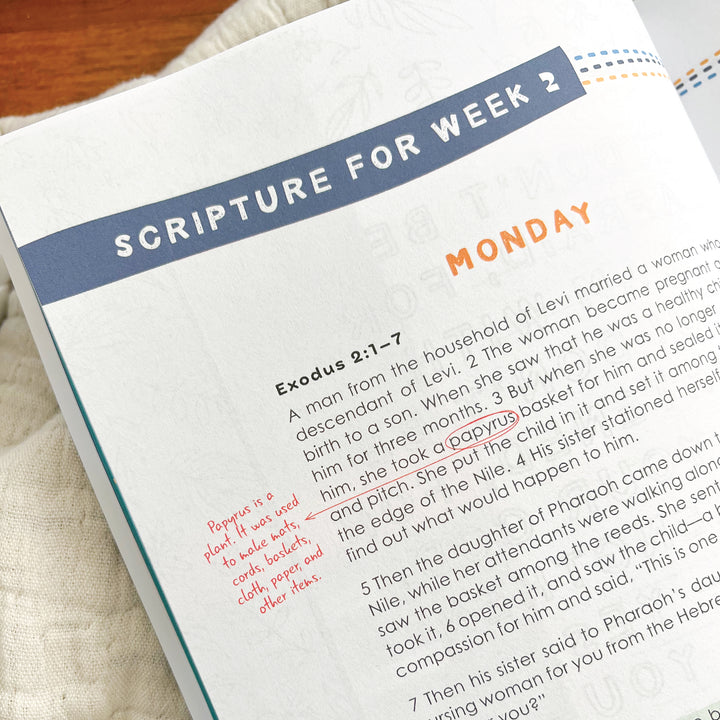 SCRIPTURE FOR WEEK 2
MONDAY
Exodus 2:1–7
A man from the household of Levi married a woman who
descendant of Levi. 2 The woman became pregnant
birth to a son. When she saw that he was a healthy
him for three months. 3 But when she was no longer
him, she took a papyrus basket for him and sealed
and pitch. She put the child in it and set it among
the edge of the Nile. 4 His sister stationed herself
find out what would happen to him.
Papyrus is a
plant. It was used
to make mats,
cords, baskets,
cloth, paper, and
other items.
5 Then the daughter of Pharaoh came down
Nile, while her attendants were walking along
saw the basket among the reeds. She sent
took it, 6 opened it, and saw the child—a
compassion for him and said, "This is one
7 Then his sister said to Pharaoh's
woman for you from the
you?"